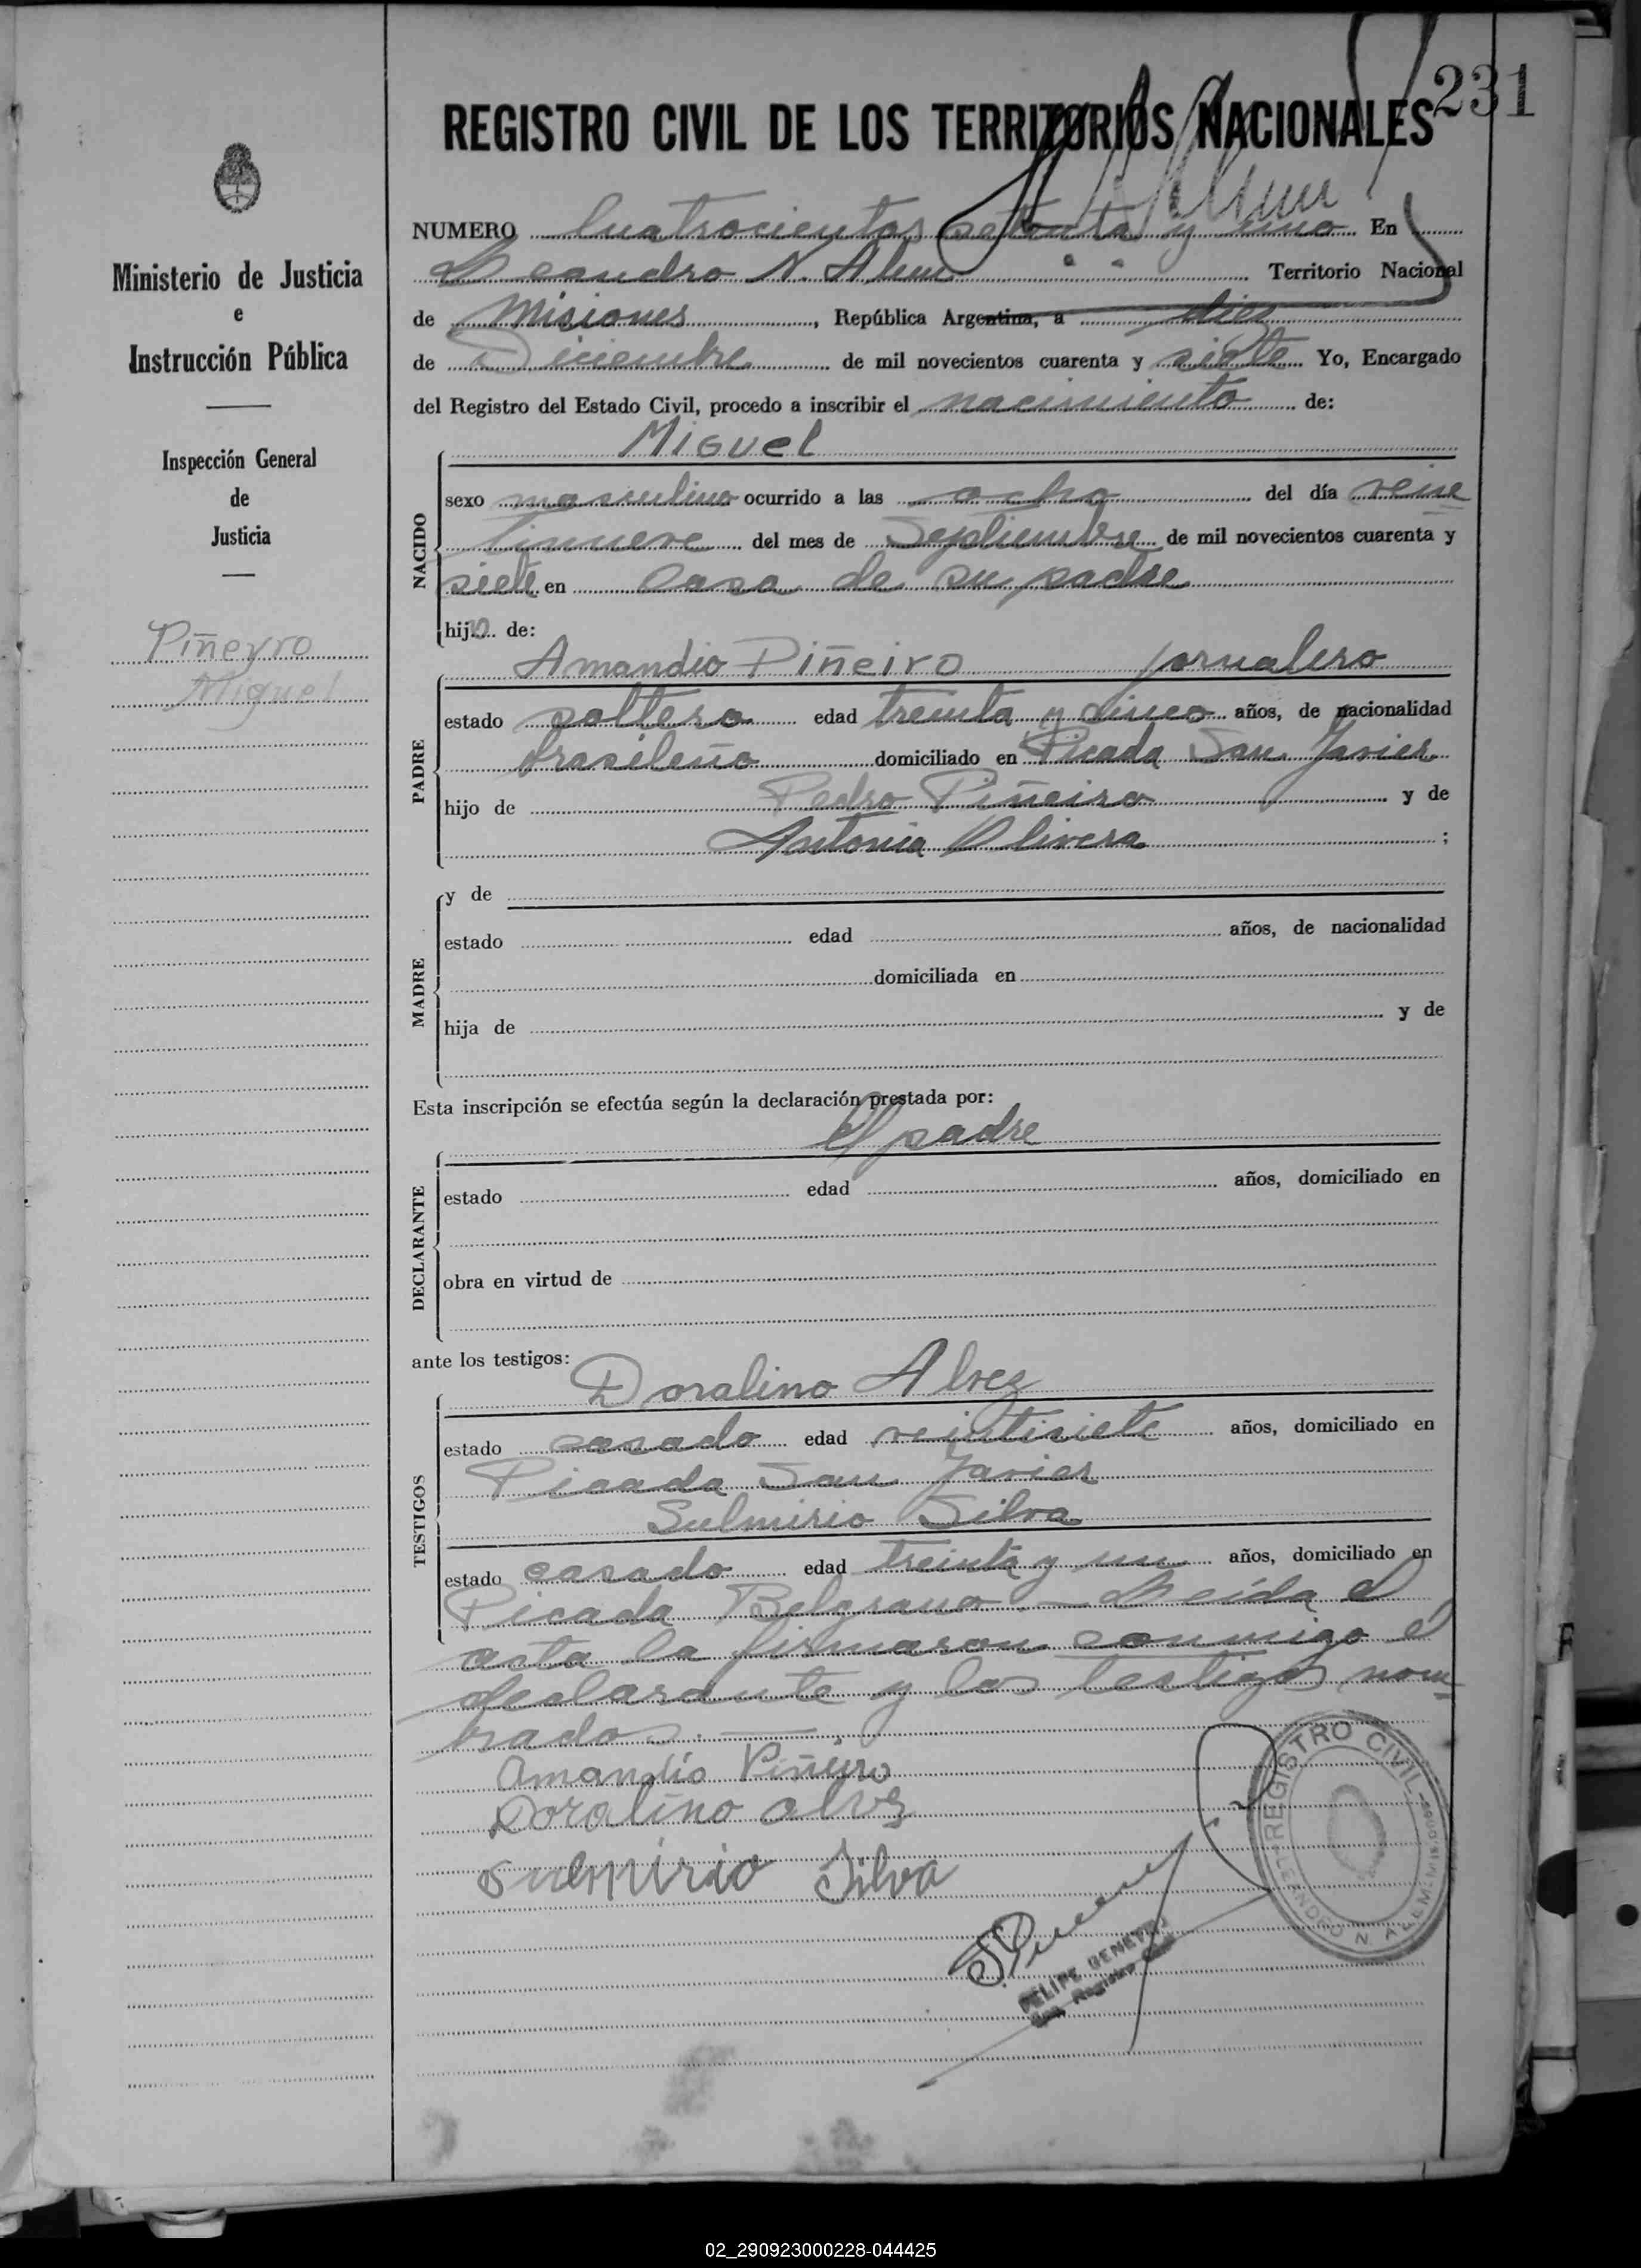 231
REGISTRO CIVIL DE LOS TERRITORIOS NACIONALES
Ministerio de Justicia
e
Instrucción Pública
Inspección General
de
Justicia
Piñeyro
Miguel
NUMERO Cuatrocientos setenta y uno En
Leandro N. Alem Territorio Nacional
de Misiones, República Argentina, a diez
de Diciembre de mil novecientos cuarenta y siete Yo, Encargado
del Registro del Estado Civil, procedo a inscribir el nacimiento de:
Miguel
NACIDO
sexo masculino ocurrido a las ocho del día vein
tinueve del mes de Septiembre de mil novecientos cuarenta y
siete en Casa de su padre
hijo de:
Amandio Piñeiro jornalero
PADRE
estado soltero edad treinta y cinco años, de nacionalidad
brasileño domiciliado en Picada San Javier
hijo de Pedro Piñeiro y de
Antonia Olivera ;
MADRE
y de
estado edad años, de nacionalidad
domiciliada en
hija de y de
Esta inscripción se efectúa según la declaración prestada por:
El padre
DECLARANTE
estado edad años, domiciliado en
obra en virtud de
ante los testigos:
Doralino Alvez
TESTIGOS
estado casado edad veintisiete años, domiciliado en
Picada San Javier
Sulmirio Silva
estado casado edad treinta y un años, domiciliado en
Picada Belgrano. — Leída el
acta la firmaron conmigo el
declarante y los testigos nom
brados. —
Amandio Piñeiro
Doralino alves
Sulmirio Silva
REGISTRO CIVIL
LEANDRO N. ALEM - MISIONES
FELIPE BENEYTO
Enc. Registro Civil
02_290923000228-044425